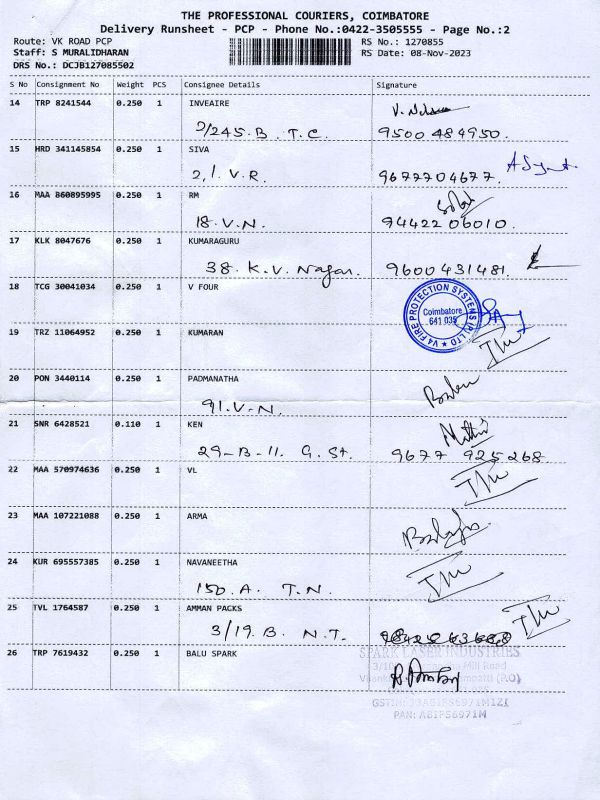 THE PROFESSIONAL COURIERS, COIMBATORE
Delivery Runsheet - PCP - Phone No.:0422-3505555 - Page No.:2
Route: VK ROAD PCP
RS No.: 1270855
Staff: S MURALIDHARAN
RS Date: 08-Nov-2023
DRS No.: DCJB127085502
S No Consignment No Weight PCS Consignee Details Signature
14 TRP 8241544 0.250 1 INVEAIRE
2/245.B. T.C. 9500484950.
15 HRD 341145854 0.250 1 SIVA
2,1.V.R. 9677704677.
16 MAA 860895995 0.250 1 RM
18.V.N. 9442206010.
17 KLK 8047676 0.250 1 KUMARAGURU
38. K.V. Nagar. 9600431481.
18 TCG 30041034 0.250 1 V FOUR
V4 FIRE PROTECTION SYSTEMS (P) LTD
Coimbatore
641 035
19 TRZ 11064952 0.250 1 KUMARAN
20 PON 3440114 0.250 1 PADMANATHA
91.V.N.
21 SNR 6428521 0.110 1 KEN
29-B-11. G.St. 9677 925268
22 MAA 570974636 0.250 1 VL
23 MAA 107221088 0.250 1 ARMA
24 KUR 695557385 0.250 1 NAVANEETHA
150.A. T.N.
25 TVL 1764587 0.250 1 AMMAN PACKS
3/19.B. N.T.
26 TRP 7619432 0.250 1 BALU SPARK
SPARK LASER INDUSTRIES
Mill Road
(P.O)
GSTIN:
PAN: ABIFS6971M